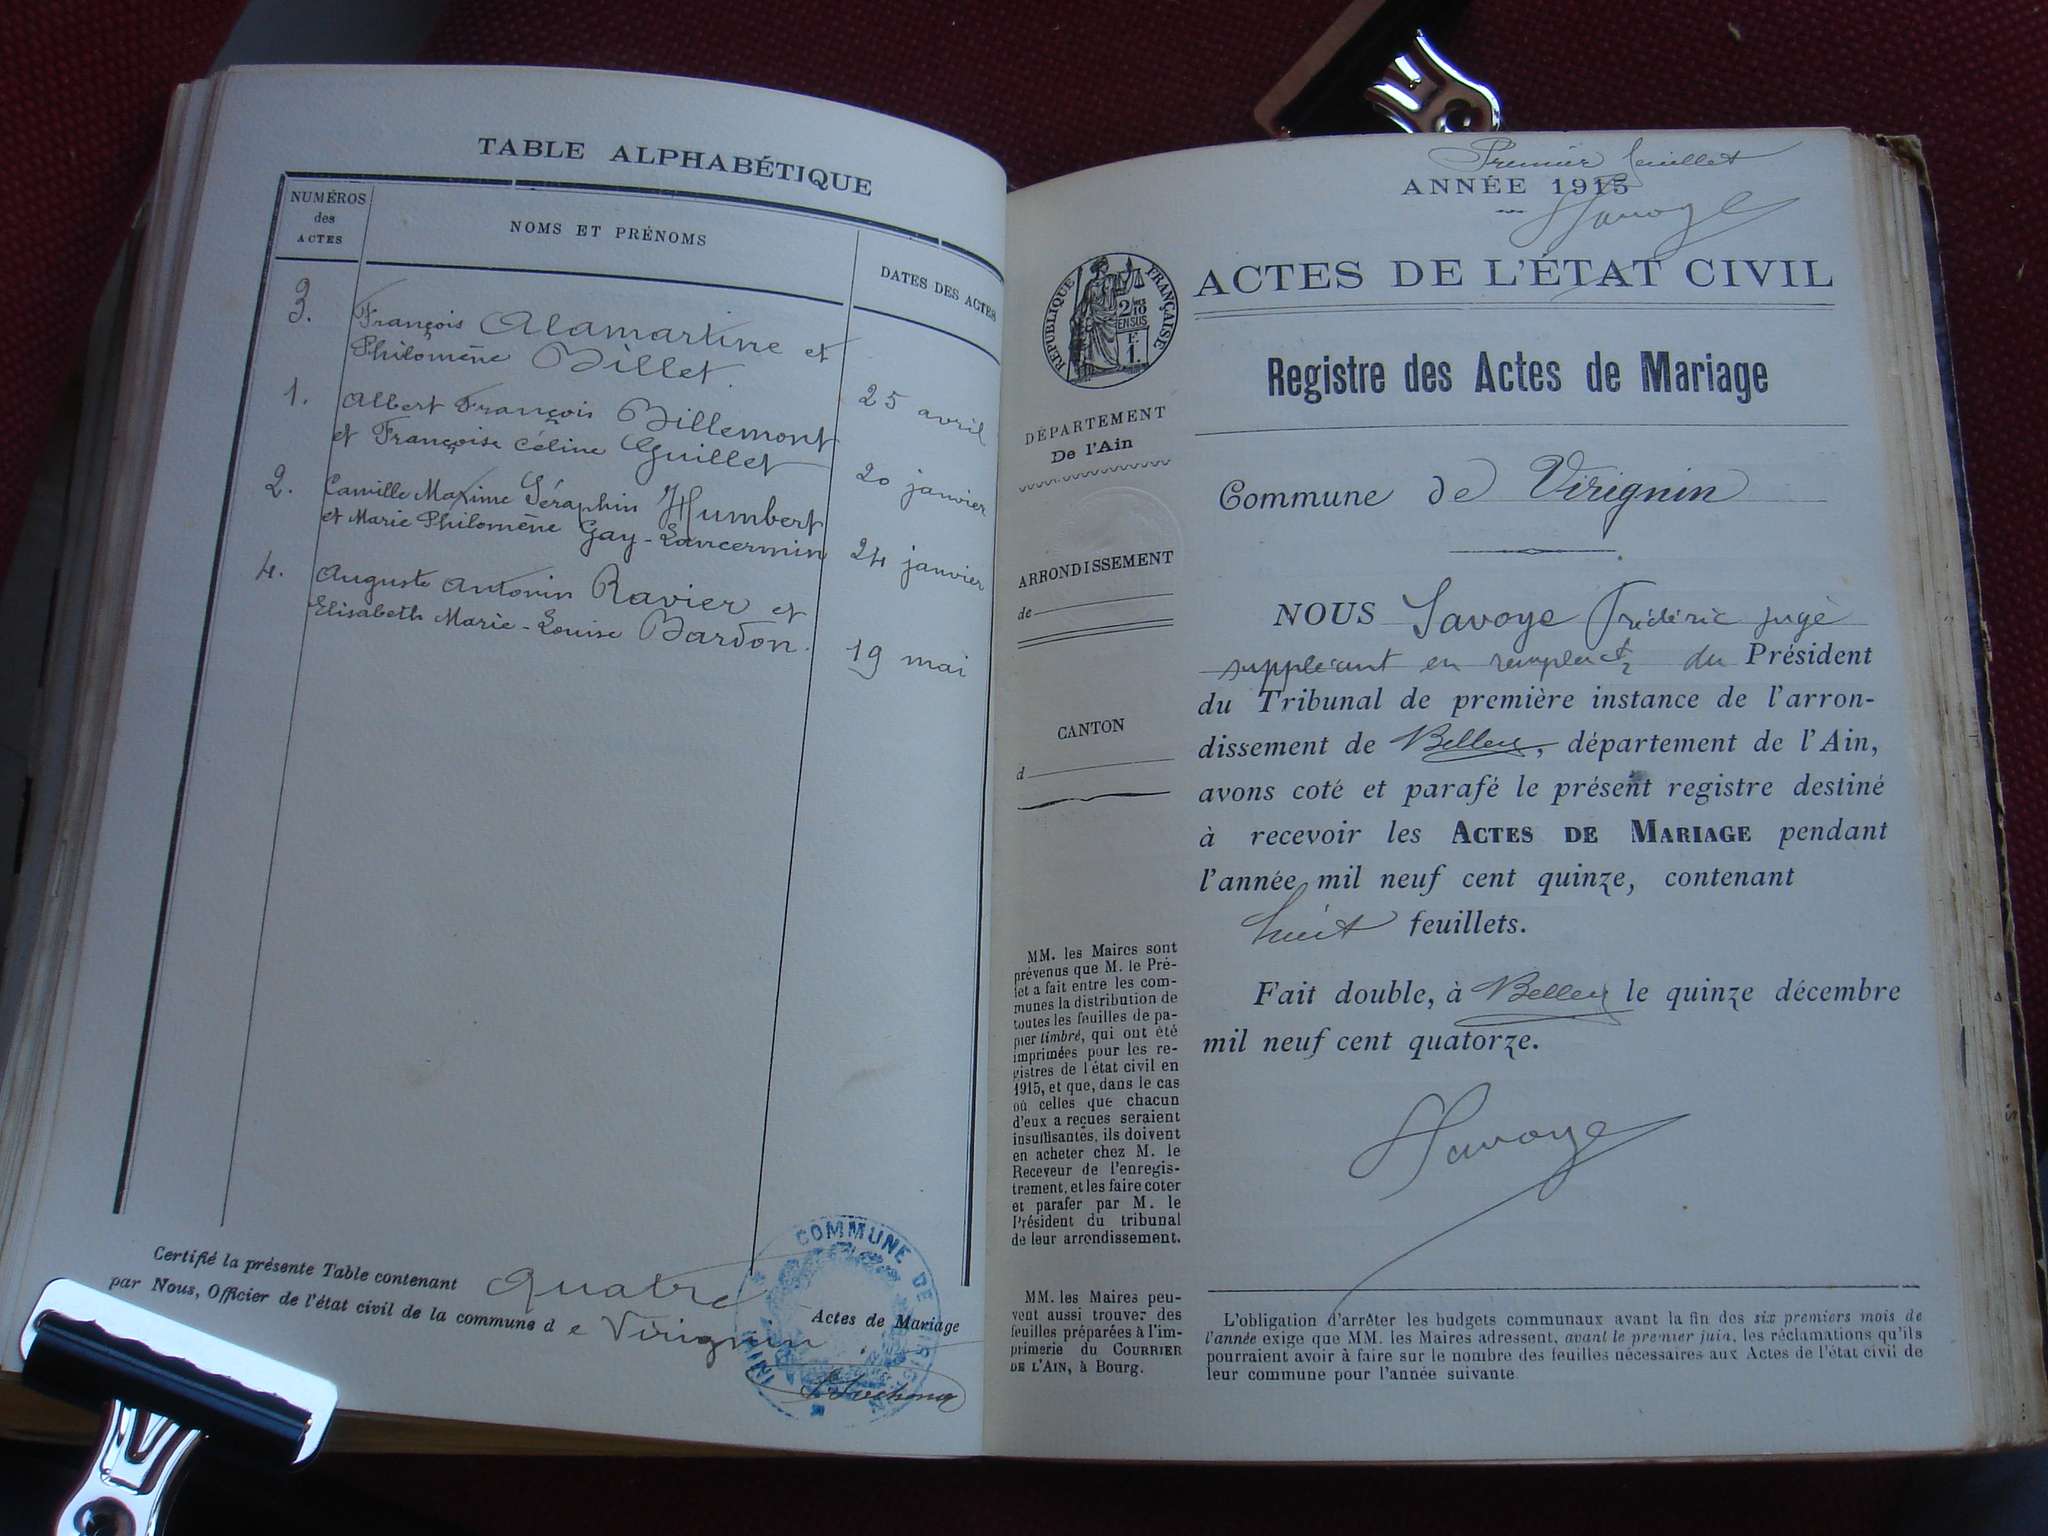 TABLE ALPHABÉTIQUE
NUMÉROS
des
ACTES
NOMS ET PRÉNOMS
DATES DES ACTES
3. François Alamartine et
Philomène Billet. 25 avril
1. Albert François Billemont
et Françoise Céline Guillet 20 janvier
2. Camille Maxime Séraphin Humbert
et Marie Philomène Gay-Lancermin 24 janvier
4. Auguste Antonin Ravier et
Elisabeth Marie-Louise Bardon. 19 mai
Certifié la présente Table contenant Quatre Actes de Mariage
par Nous, Officier de l'état civil de la commune d e Virignin.
COMMUNE DE VIRIGNIN
Premier feuillet
ANNÉE 1915
Savoye
RÉPUBLIQUE FRANÇAISE
2/10
EN SUS
E
1.
ACTES DE L'ÉTAT CIVIL
Registre des Actes de Mariage
DÉPARTEMENT
De l'Ain
ARRONDISSEMENT
de
CANTON
d
Commune de Virignin
NOUS Savoye Frédéric juge
suppléant en remplact du Président
du Tribunal de première instance de l'arron-
dissement de Belley, département de l'Ain,
avons coté et parafé le présent registre destiné
à recevoir les ACTES DE MARIAGE pendant
l'année mil neuf cent quinze, contenant
huit feuillets.
Fait double, à Belley le quinze décembre
mil neuf cent quatorze.
Savoye
MM. les Maires sont
prévenus que M. le Pré-
fet a fait entre les com-
munes la distribution de
toutes les feuilles de pa-
pier timbré, qui ont été
imprimées pour les re-
gistres de l'état civil en
1915, et que, dans le cas
où celles que chacun
d'eux a reçues seraient
insuffisantes, ils doivent
en acheter chez M. le
Receveur de l'enregis-
trement, et les faire coter
et parafer par M. le
Président du tribunal
de leur arrondissement.
MM. les Maires peu-
vent aussi trouver des
feuilles préparées à l'im-
primerie du COURRIER
DE L'AIN, à Bourg.
L'obligation d'arrêter les budgets communaux avant la fin des six premiers mois de
l'année exige que MM. les Maires adressent, avant le premier juin, les réclamations qu'ils
pourraient avoir à faire sur le nombre des feuilles nécessaires aux Actes de l'état civil de
leur commune pour l'année suivante